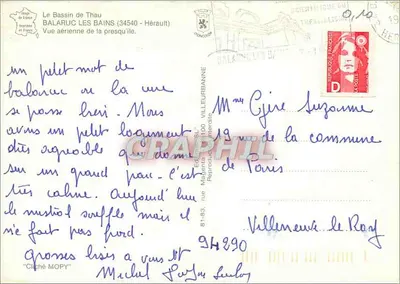 Le Bassin de Thau
BALARUC LES BAINS (34540 - Hérault)
Vue aérienne de la presqu'île.
0,10
un petit mot de
balaruc où la cure
se passe bien. Nous
avons un petit logement
très agréable qui donne
sur un grand parc. c'est
très calme. Aujourd'hui
le mistral souffle mais il
ne fait pas froid.
grosses bises a vous tt
Michel
"Cliché MOPY"
81-83, rue 100 VILLEURBANNE
RÉPUBLIQUE FRANÇAISE
D
Mme Suzanne
19 rue de la commune
de Paris
Villeneuve le Roy
94290
CARAPHIL